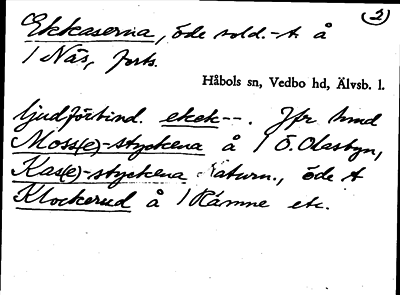 2)
Ekkaserna, öde sold.-t å
1 Näs, forts.
Håbols sn, Vedbo hd, Älvsb. l.
ljudförbind. ekek--. Jfr hmd
Moss(e)-styckena å 1 Ö. Olasbyn,
Kas(e)-styckena naturn., öde t
Klockerud å 1 Rämne etc.